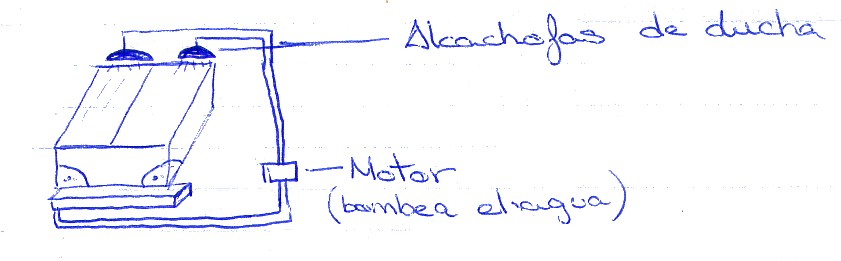 Alcachofas de ducha
Motor
(bombea el agua)